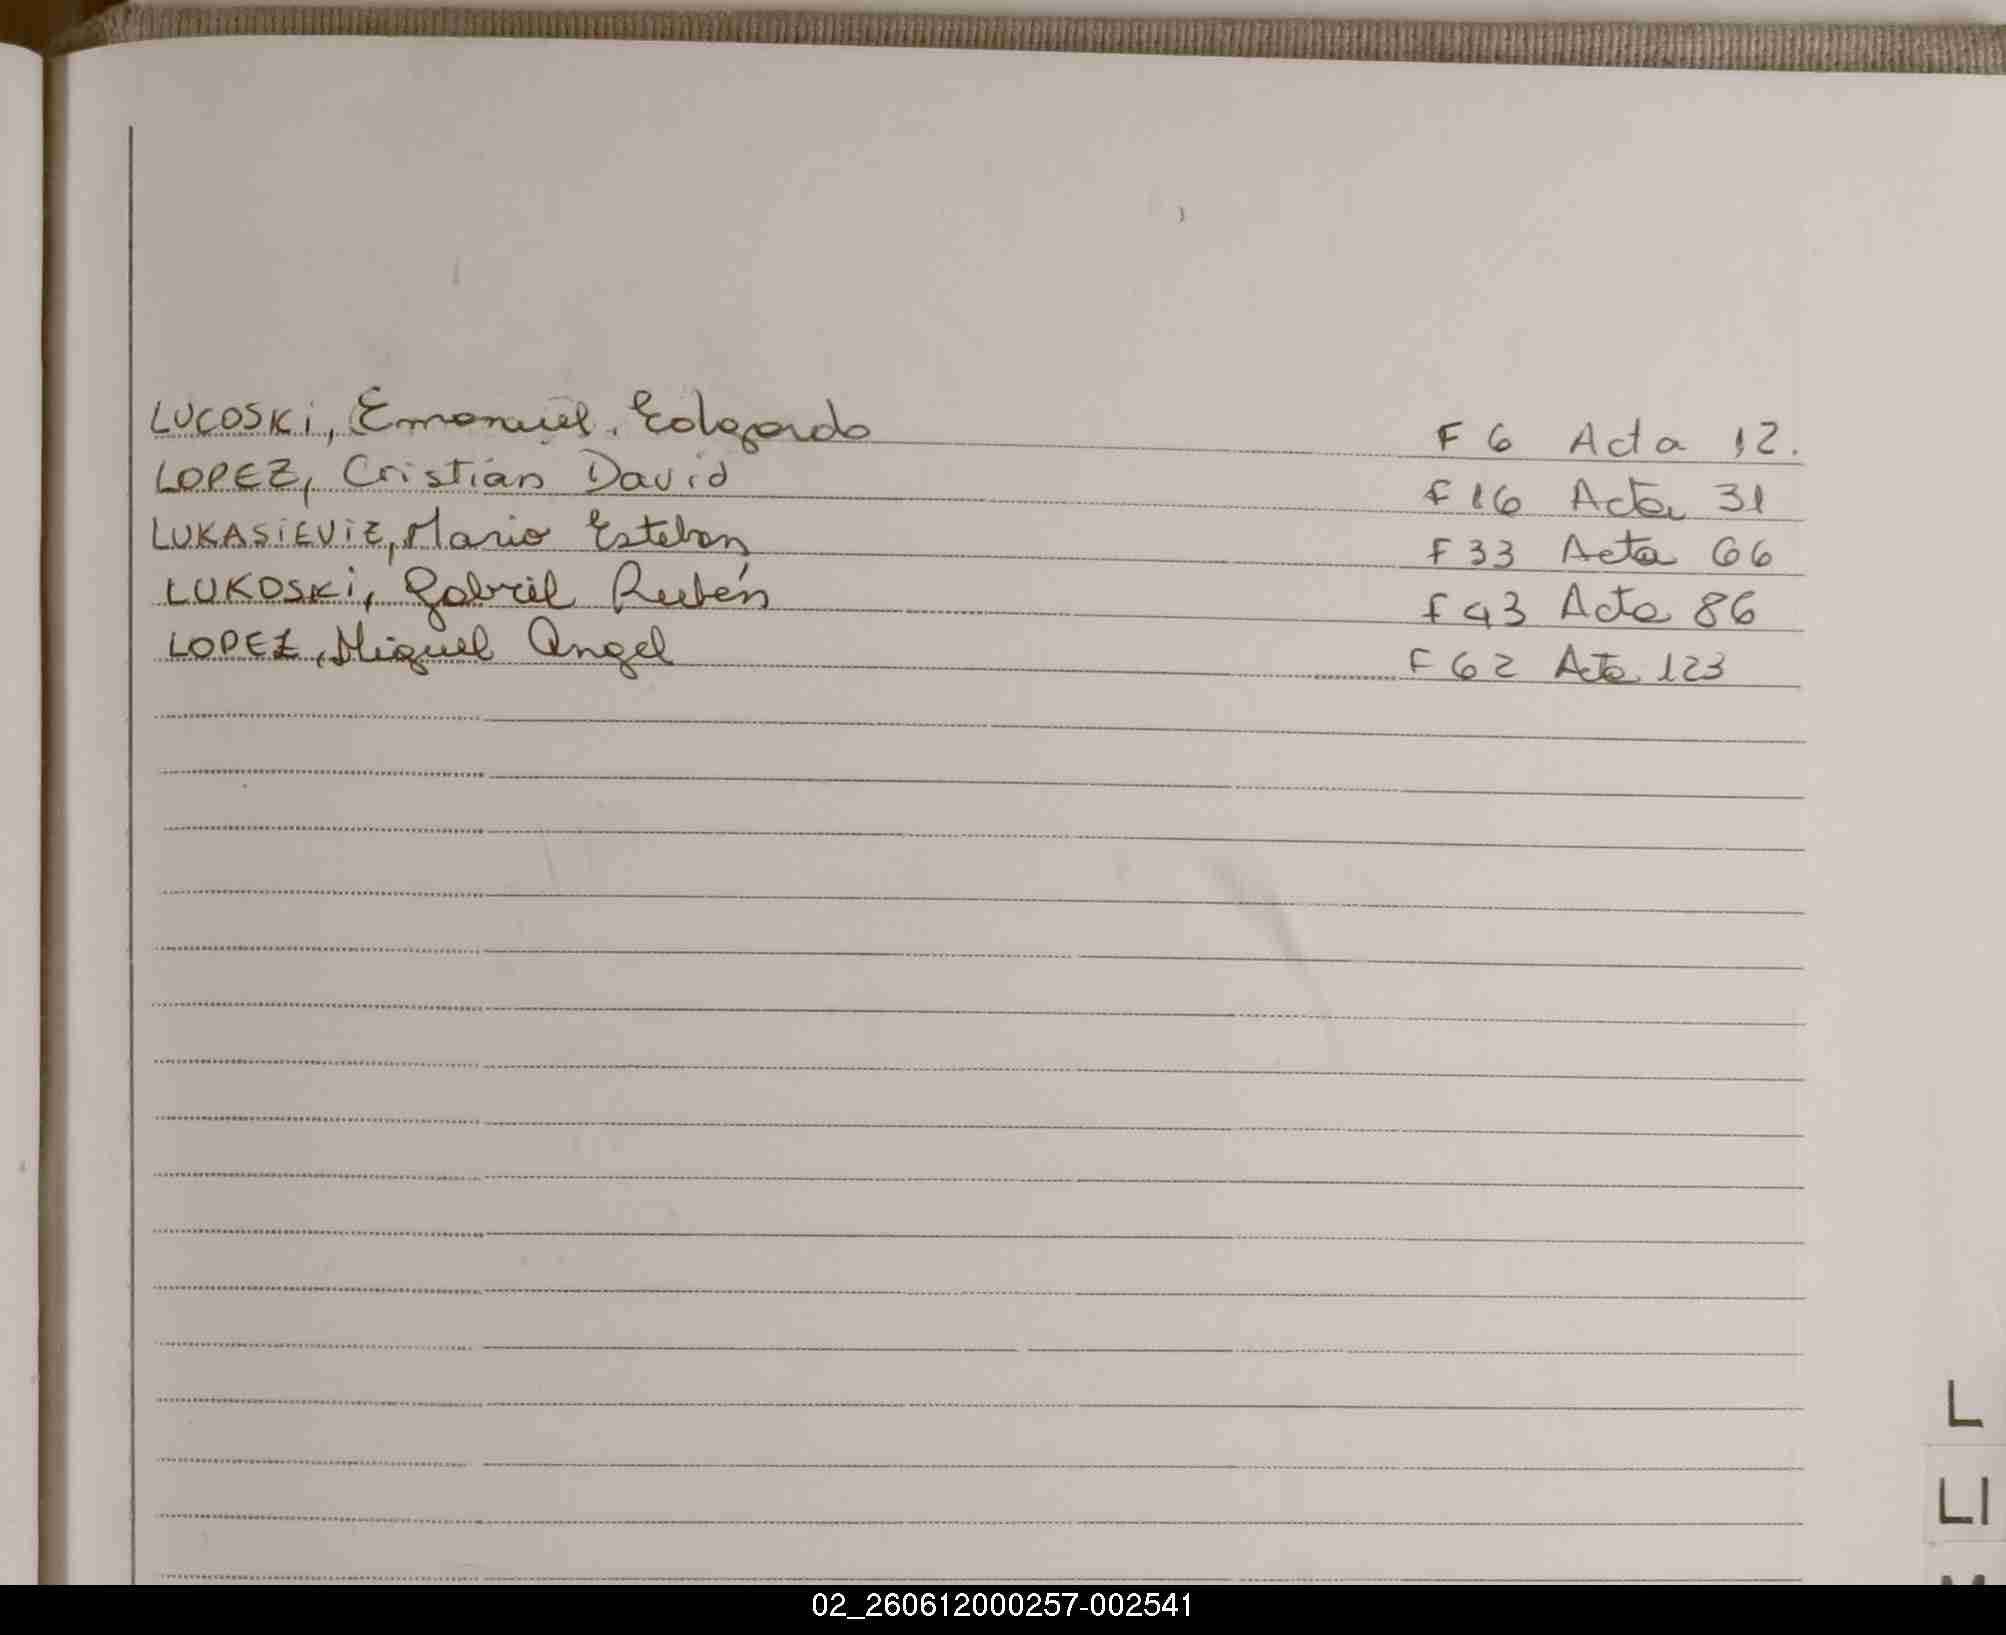 LUCOSKi, Emanuel. Edgardo F 6 Acta 12.
LOPEZ, Cristian David F 16 Acta 31
LUKASiEViZ, Mario Esteban F 33 Acta 66
LUKOSKi, Gabriel Rubén F 43 Acta 86
LOPEZ, Miguel Angel F 62 Acta 123
L
Ll
02_260612000257-002541